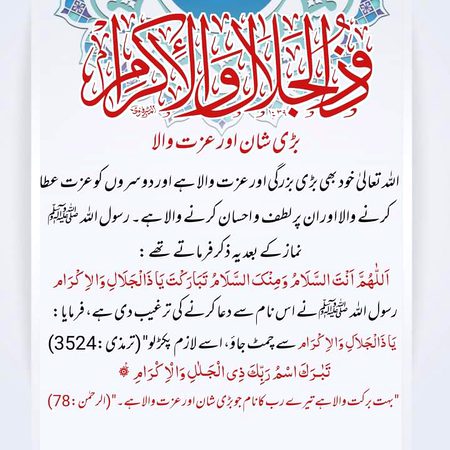 ذُو الْجَلَالِ وَالْإِكْرَامِ
بڑی شان اور عزت والا
اللہ تعالیٰ خود بھی بڑی بزرگی اور عزت والا ہے اور دوسروں کو عزت عطا
کرنے والا اور ان پر لطف و احسان کرنے والا ہے۔ رسول اللہ ﷺ
نماز کے بعد یہ ذکر فرماتے تھے :
اَللّٰهُمَّ اَنْتَ السَّلَامُ وَمِنْكَ السَّلَامُ تَبَارَكْتَ يَا ذَالْجَلَالِ وَالْاِكْرَام
رسول اللہ ﷺ نے اس نام سے دعا کرنے کی ترغیب دی ہے، فرمایا :
يَا ذَالْجَلَالِ وَالْاِكْرَام سے چمٹ جاؤ، اسے لازم پکڑلو" (ترمذی: 3524)
تَبٰرَكَ اسْمُ رَبِّكَ ذِى الْجَلٰلِ وَالْاِكْرَامِ
"بہت برکت والا ہے تیرے رب کا نام جو بڑی شان اور عزت والا ہے۔" (الرحمٰن: 78)